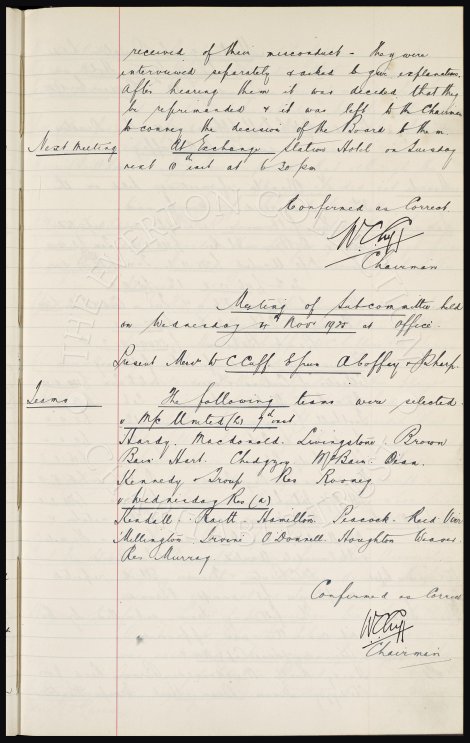 received of their misconduct - they were
interviewed separately & asked to give explanations.
After hearing them it was decided that they
be reprimanded & it was left to the Chairman
to convey the decision of the Board to them.
Next Meeting At Exchange Station Hotel on Tuesday
next 10th inst at 6 30 pm
Confirmed as Correct
W.C. Cuff
Chairman
Meeting of Subcommittee held
on Wednesday 4th Nov 1925 at Office.
Present Messrs W C Cuff A Coffey & Sharp.
Teams The following teams were selected
v M/c United (h) 7th inst
Hardy. Macdonald. Livingstone. Brown
Bain Hart. Chedgzoy McBain. Dean.
Kennedy & Troup Res Rooney
v Wednesday Res (a)
Kendall. Raitt. Hamilton. Peacock. Reid Virr
Millington Irvine O'Donnell Houghton Weaver.
Res Murray
Confirmed as Correct
W.C. Cuff
Chairman
THE EVERTON COLLECTION